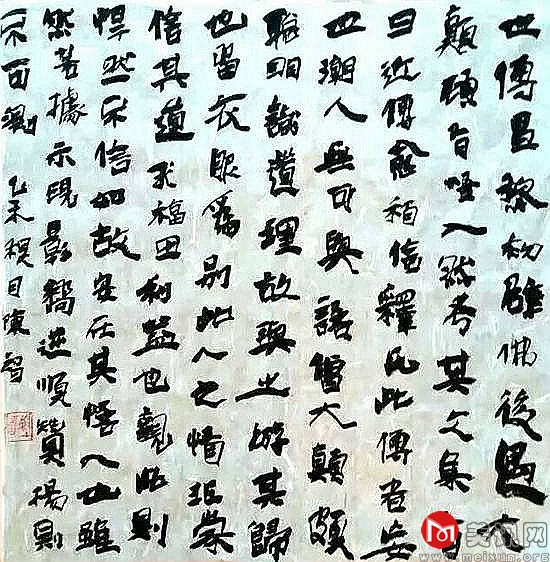 世傳昌黎初佛後遇大
顛頓有悟入然考其文集
曰近傳愈稍信釋氏此傳者妄
也潮人無可與語僧大顛頗
聰明識道理故與之游其歸
也留衣服爲別此人之情非崇
信其道求福田利益也觀此則
悍然不信如故安在其悟入也雖
然若據示現影響逆順贊揚則
不可測 乙未月陳雪
美讯网
www.meixun.org